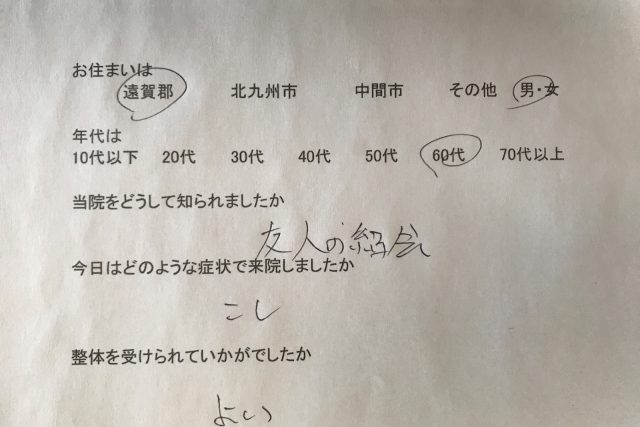 お住まいは
遠賀郡 北九州市 中間市 その他 男・女
年代は
10代以下 20代 30代 40代 50代 60代 70代以上
当院をどうして知られましたか
友人の紹会
今日はどのような症状で来院しましたか
こし
整体を受けられていかがでしたか
よい